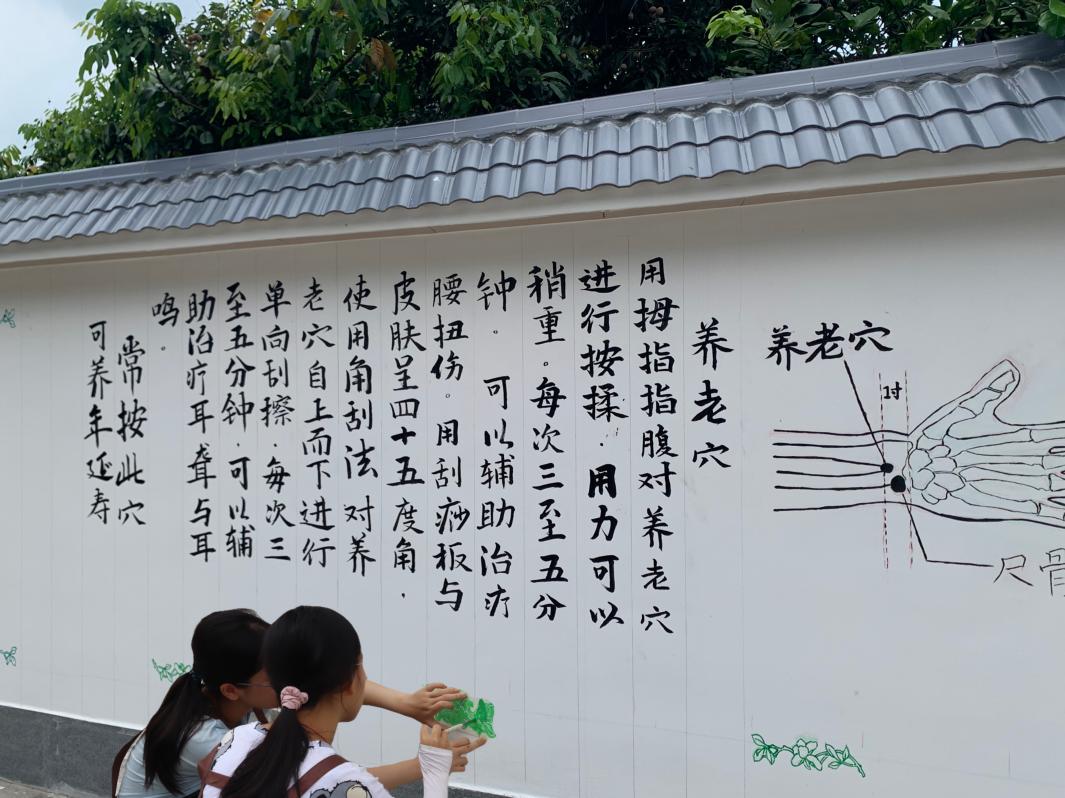 养老穴
用拇指指腹对养老穴
进行按揉.用力可以
稍重。每次三至五分
钟。可以辅助治疗
腰扭伤。用刮痧板与
皮肤呈四十五度角.
使用角刮法对养
老穴自上而下进行
单向刮擦.每次三
至五分钟.可以辅
助治疗耳聋与耳
鸣。
常按此穴
可养年延寿
养老穴
1寸
尺骨